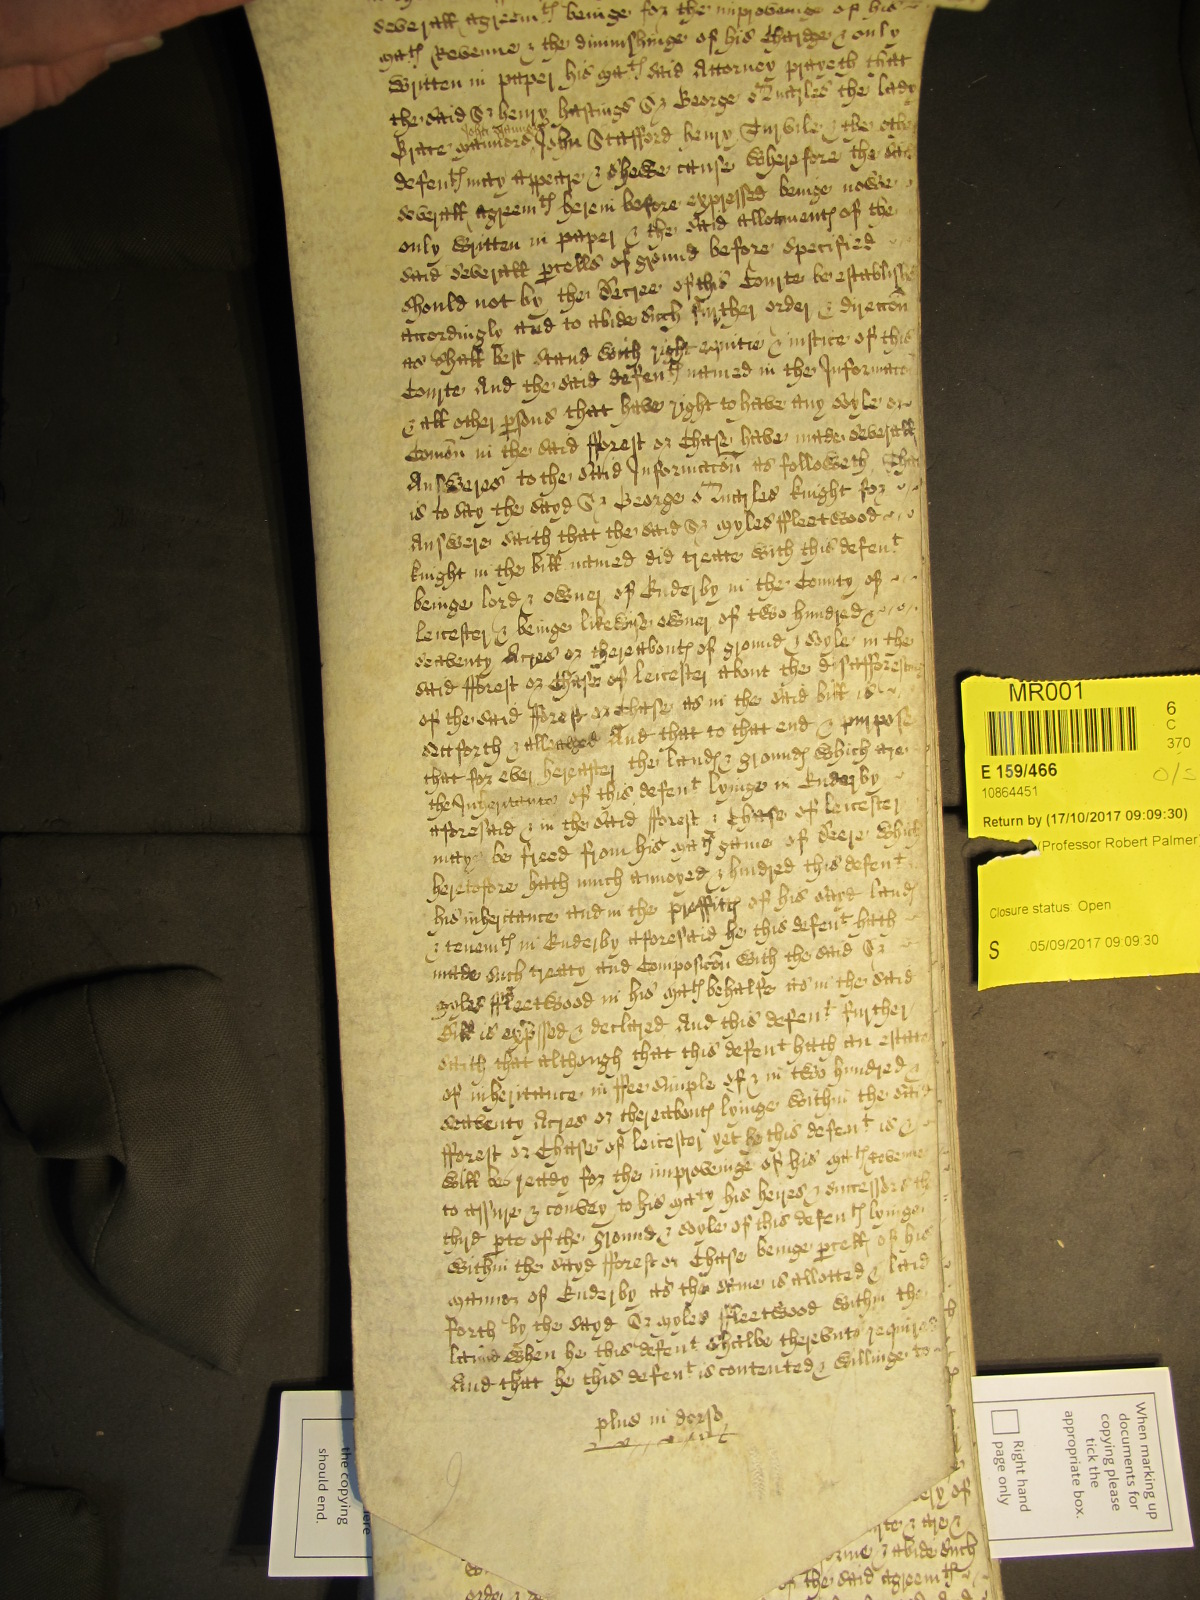 severall agreemtes beinge for the improveinge of his
Mats Revenue & the diminishinge of his Chardge & only
written in paper his Mats said Attorney prayeth that
the said Sr Henry Hastings Sr George Quarles the Lady
Grace Manners John Stafford Henry Turvile & the other
defents may appeare & shewe cause wherefore the said
severall agreemts herein before expressed beinge nowe
only written in paper & the said allotments of the
said severall pcells of ground before specified
should not by the decree of this Courte be established
accordingly and to abide such further order & direccon
as shall best stand with right equitie & iustice of this
Courte And the said defents named in the Informacon
& all other psons that have right to have any soyle or
Comon in the said fforest or Chase have made severall
Answeres to the said Informacon as followeth That
is to say the sayd Sr George Quarles knight for
Answere saith that the said Sr Myles ffleetwood
knight in the bill named did treate with this defent
beinge lord & owner of Enderby in the County of
Leicester & beinge likewise owner of two hundred &
seaventy Acres or thereabouts of ground & soyle in the
said fforest or Chase of Leicester about the disafforestinge
of the said fforest or Chase as in the said bill is
sett forth & alleadged And that to that end & purpose
that for ever hereafter the lands & grounds which are
the Inheritance of this defent lyinge in Enderby
aforesaid & in the said fforest & Chase of Leicester
may be freed from his Mats game of deere which
heretofore hath much annoyed & hindred this defent
his inheritance and in the proffitts of his sayd lands
& tenemts in Enderby aforesaid he this defent hath
made such treaty and Composicon with the said Sr
Myles ffleetwood in his Mats behalfe as in the said
Bill is expssed & declared And this defent further
saith that although that this defent hath an estate
of inheritance in ffee simple of & in two hundred &
seaventy Acres or thereabouts lyinge within the said
fforest or Chase of Leicester yet he this defent is &
will be ready for the improveinge of his Mats revenue
to assure & convey to his Maty his heires & successors the
third pte of the ground & soyle of this defents lyinge
within the sayd fforest or Chase beinge pcell of his
mannor of Enderby as the same is allotted & laid
forth by the sayd Sr Myles ffleetwood within the
same when he this defent shalbe therevnto required
And that he this defent is contented & willinge to
plus in dorso
MR001
6
C
370
E 159/466
O/S
10864451
Return by (17/10/2017 09:09:30)
(Professor Robert Palmer
Closure status: Open
S 05/09/2017 09:09:30
When marking up
documents for
copying please
tick the
appropriate box.
Right hand
page only
here
the copying
should end.
of the said agreemts